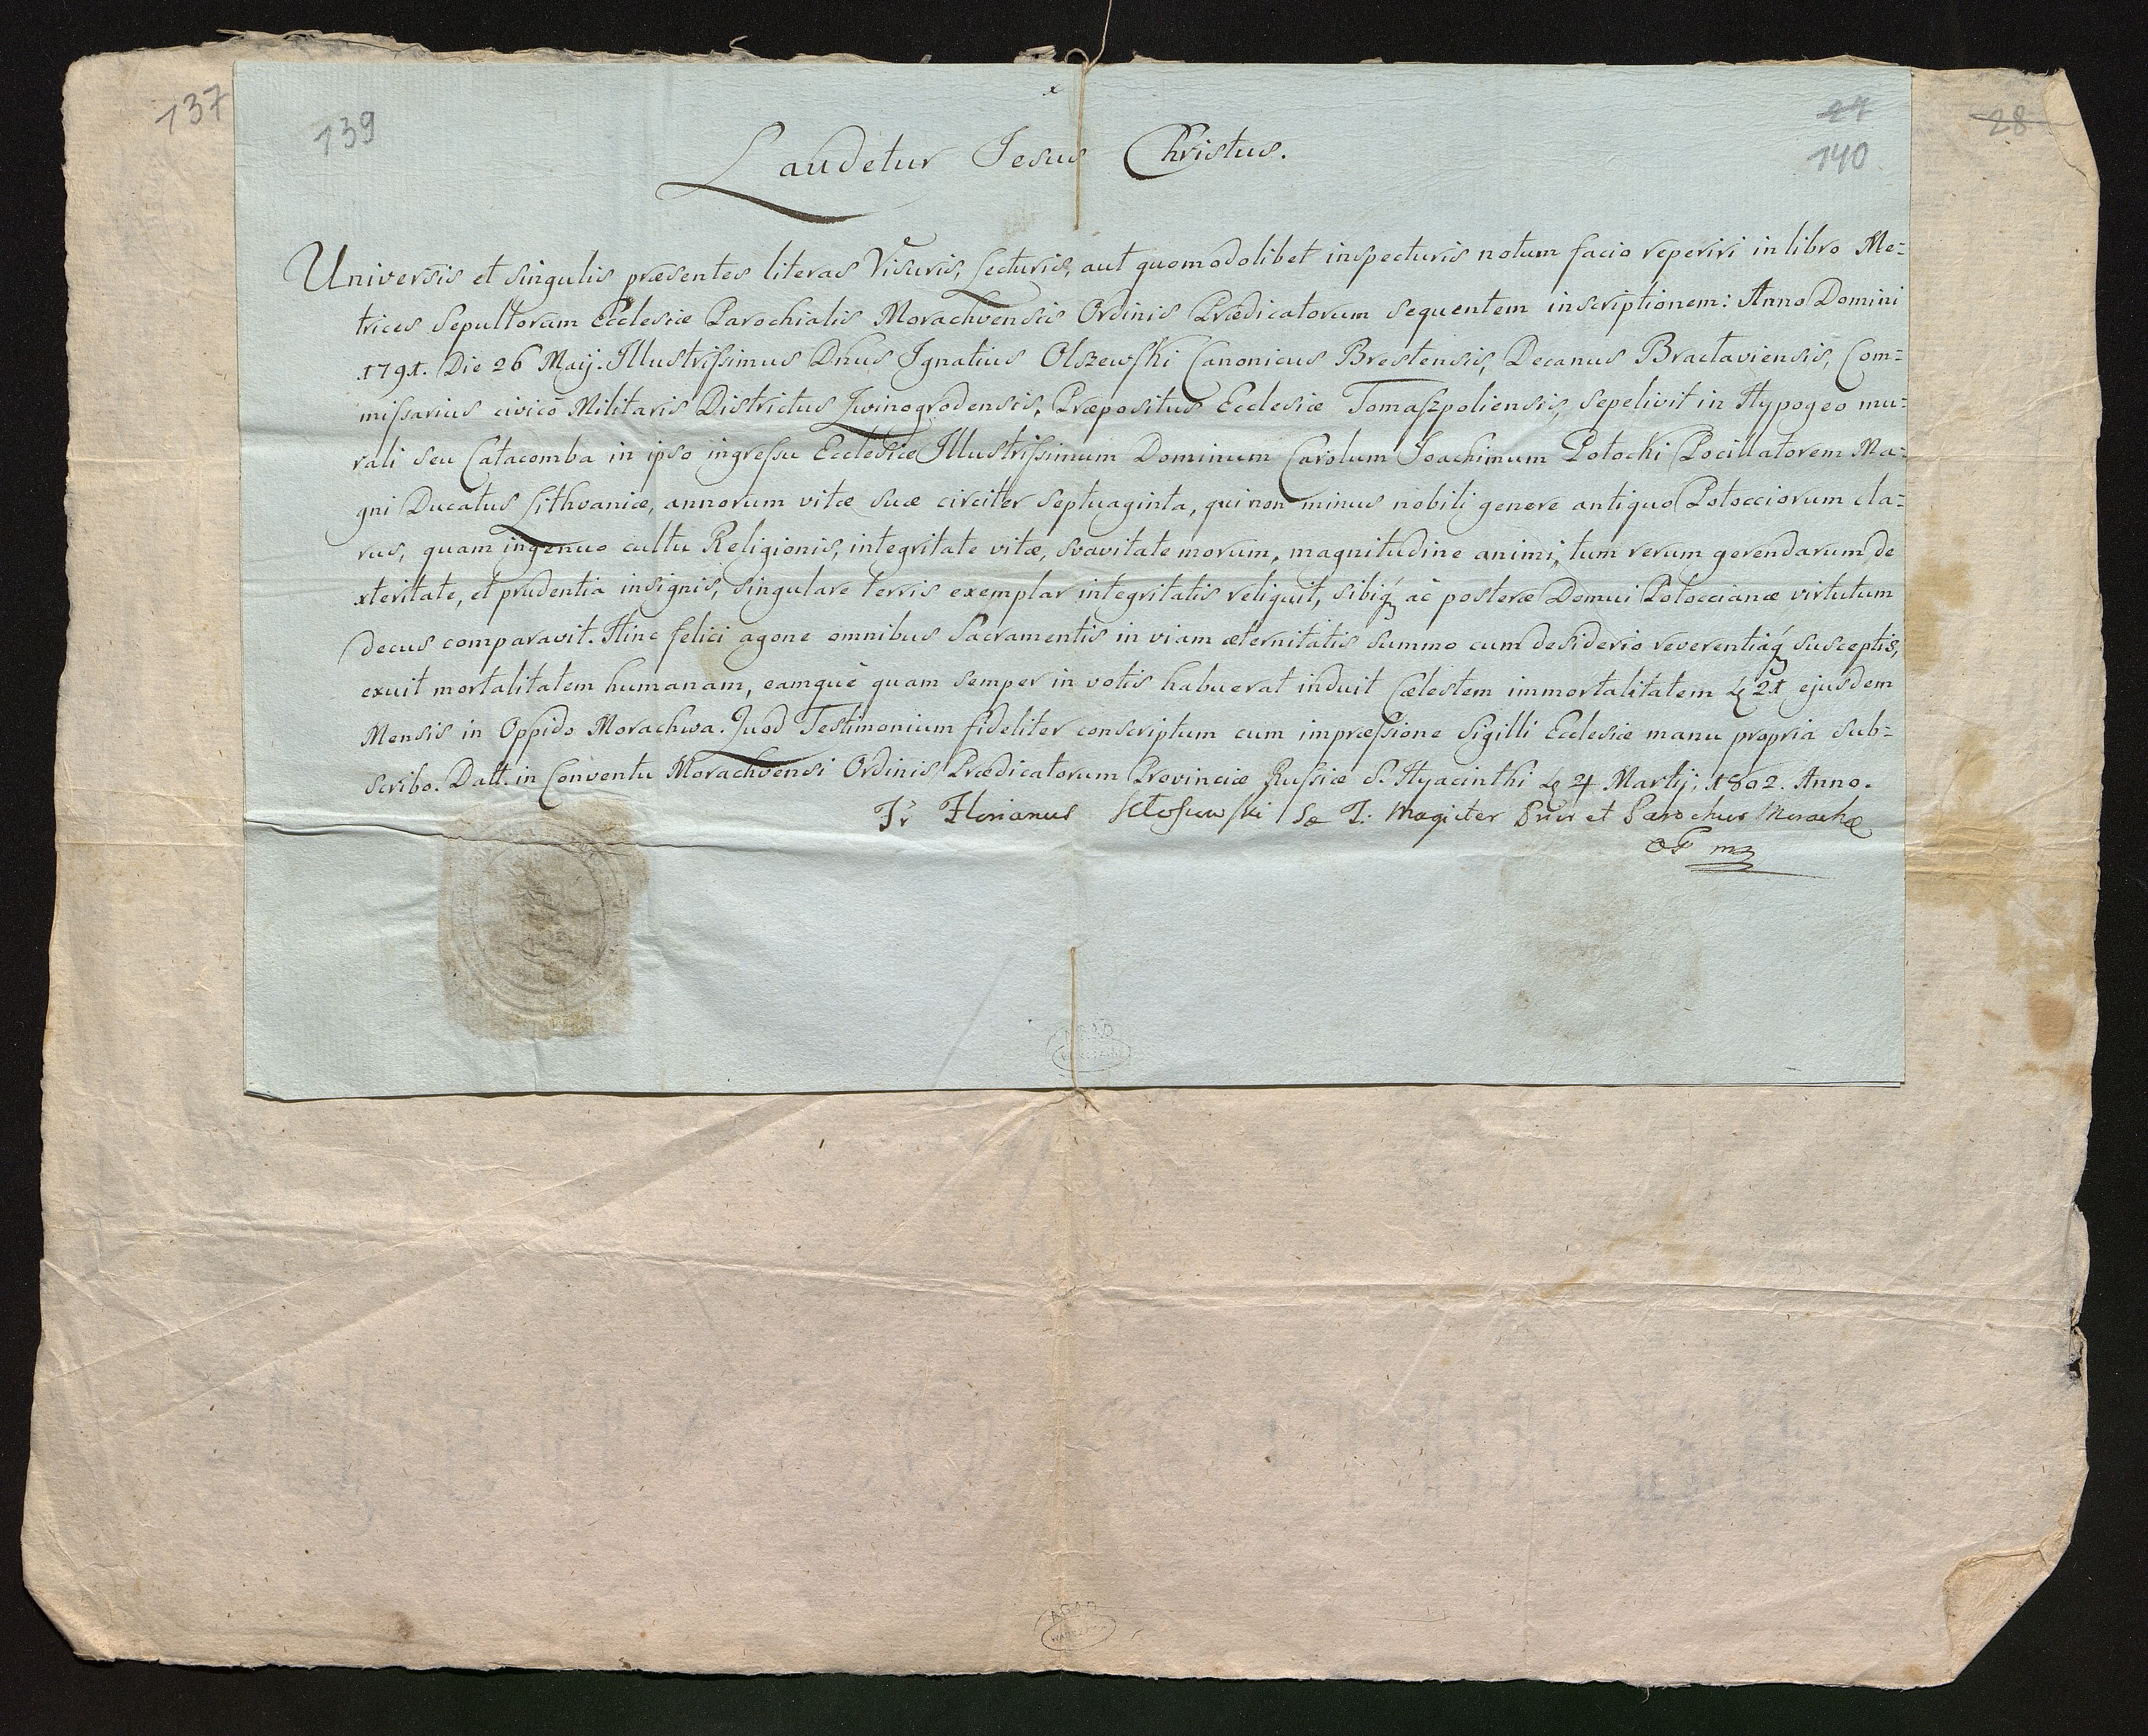 137
139
27
140
28
Laudetur Jesus Christus.
Universis et singulis præsentes literas Visuris, Lecturis, aut quomodolibet inspecturis notum facio reperiri in libro Me=
trices Sepultorum Ecclesiæ Parochialis Morachvensis Ordinis Prædicatorum sequentem inscriptionem: Anno Domini
1791. Die 26 Maij. Illustrissimus Dnus Ignatius Olszewski Canonicus Brestensis, Decanus Braclaviensis, Com=
missarius civico Militaris Districtus Zwinogrodensis, Præpositus Ecclesiæ Tomaszpoliensis, sepelivit in Hypogeo mu=
rali seu Catacomba in ipso ingressu Ecclesiæ Illustrissimum Dominum Carolum Joachimum Potocki Pocillatorem Ma=
gni Ducatus Lithvaniæ, annorum vitæ suæ circiter septuaginta, qui non minus nobili genere antiquo Potocciorum cla=
rus, quam ingenuo cultu Religionis, integritate vitæ, svavitate morum, magnitudine animi, tum rerum gerendarum de
xteritate, et prudentia insignis, singulare terris exemplar integritatis reliquit, sibiq́ ac posteræ Domui Potoccianæ virtutum
decus comparavit. Hinc felici agone omnibus Sacramentis in viam æternitatis summo cum desiderio reverentiaq́ susceptis,
exuit mortalitatem humanam, eamquè quam semper in votis habuerat induit Cælestem immortalitatem 21 ejusdem
Mensis in Oppido Morachwa. Quod Testimonium fideliter conscriptum cum impræssione Sigilli Ecclesiæ manu propria sub=
scribo. Datt. in Conventu Morachvensi Ordinis Prædicatorum Provinciæ Russiæ S. Hyacinthi 4 Martij, 1802. Anno.
Fr Florianus S. T. Magister Prior et Parochus Morachæ
OP mp
AGAD
WARSZAWA
AGAD
WARSZAWA